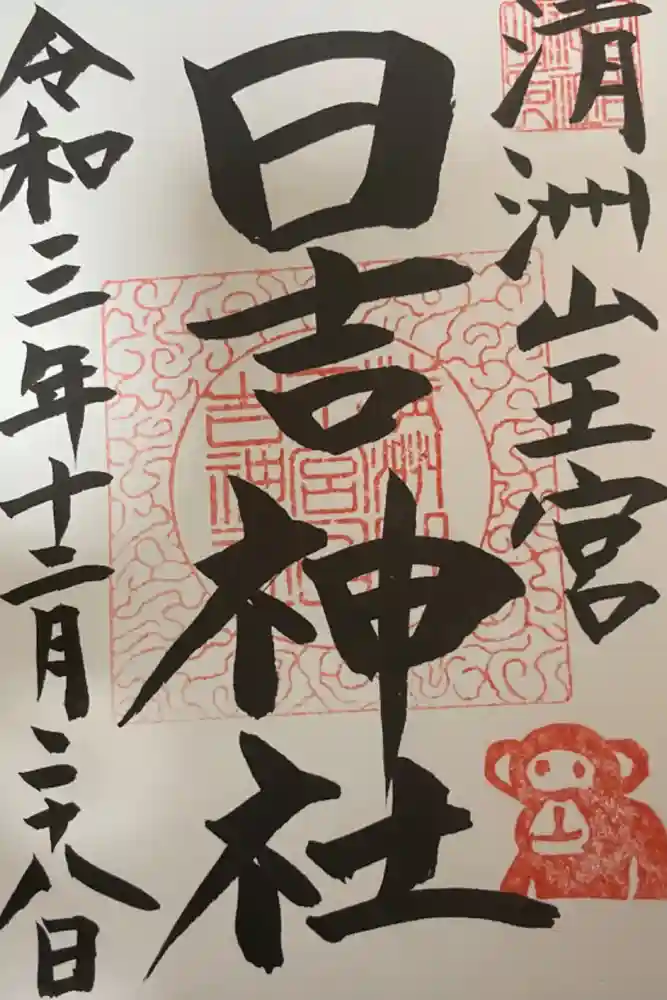 清洲山王宮
日吉神社
令和三年十二月二十八日